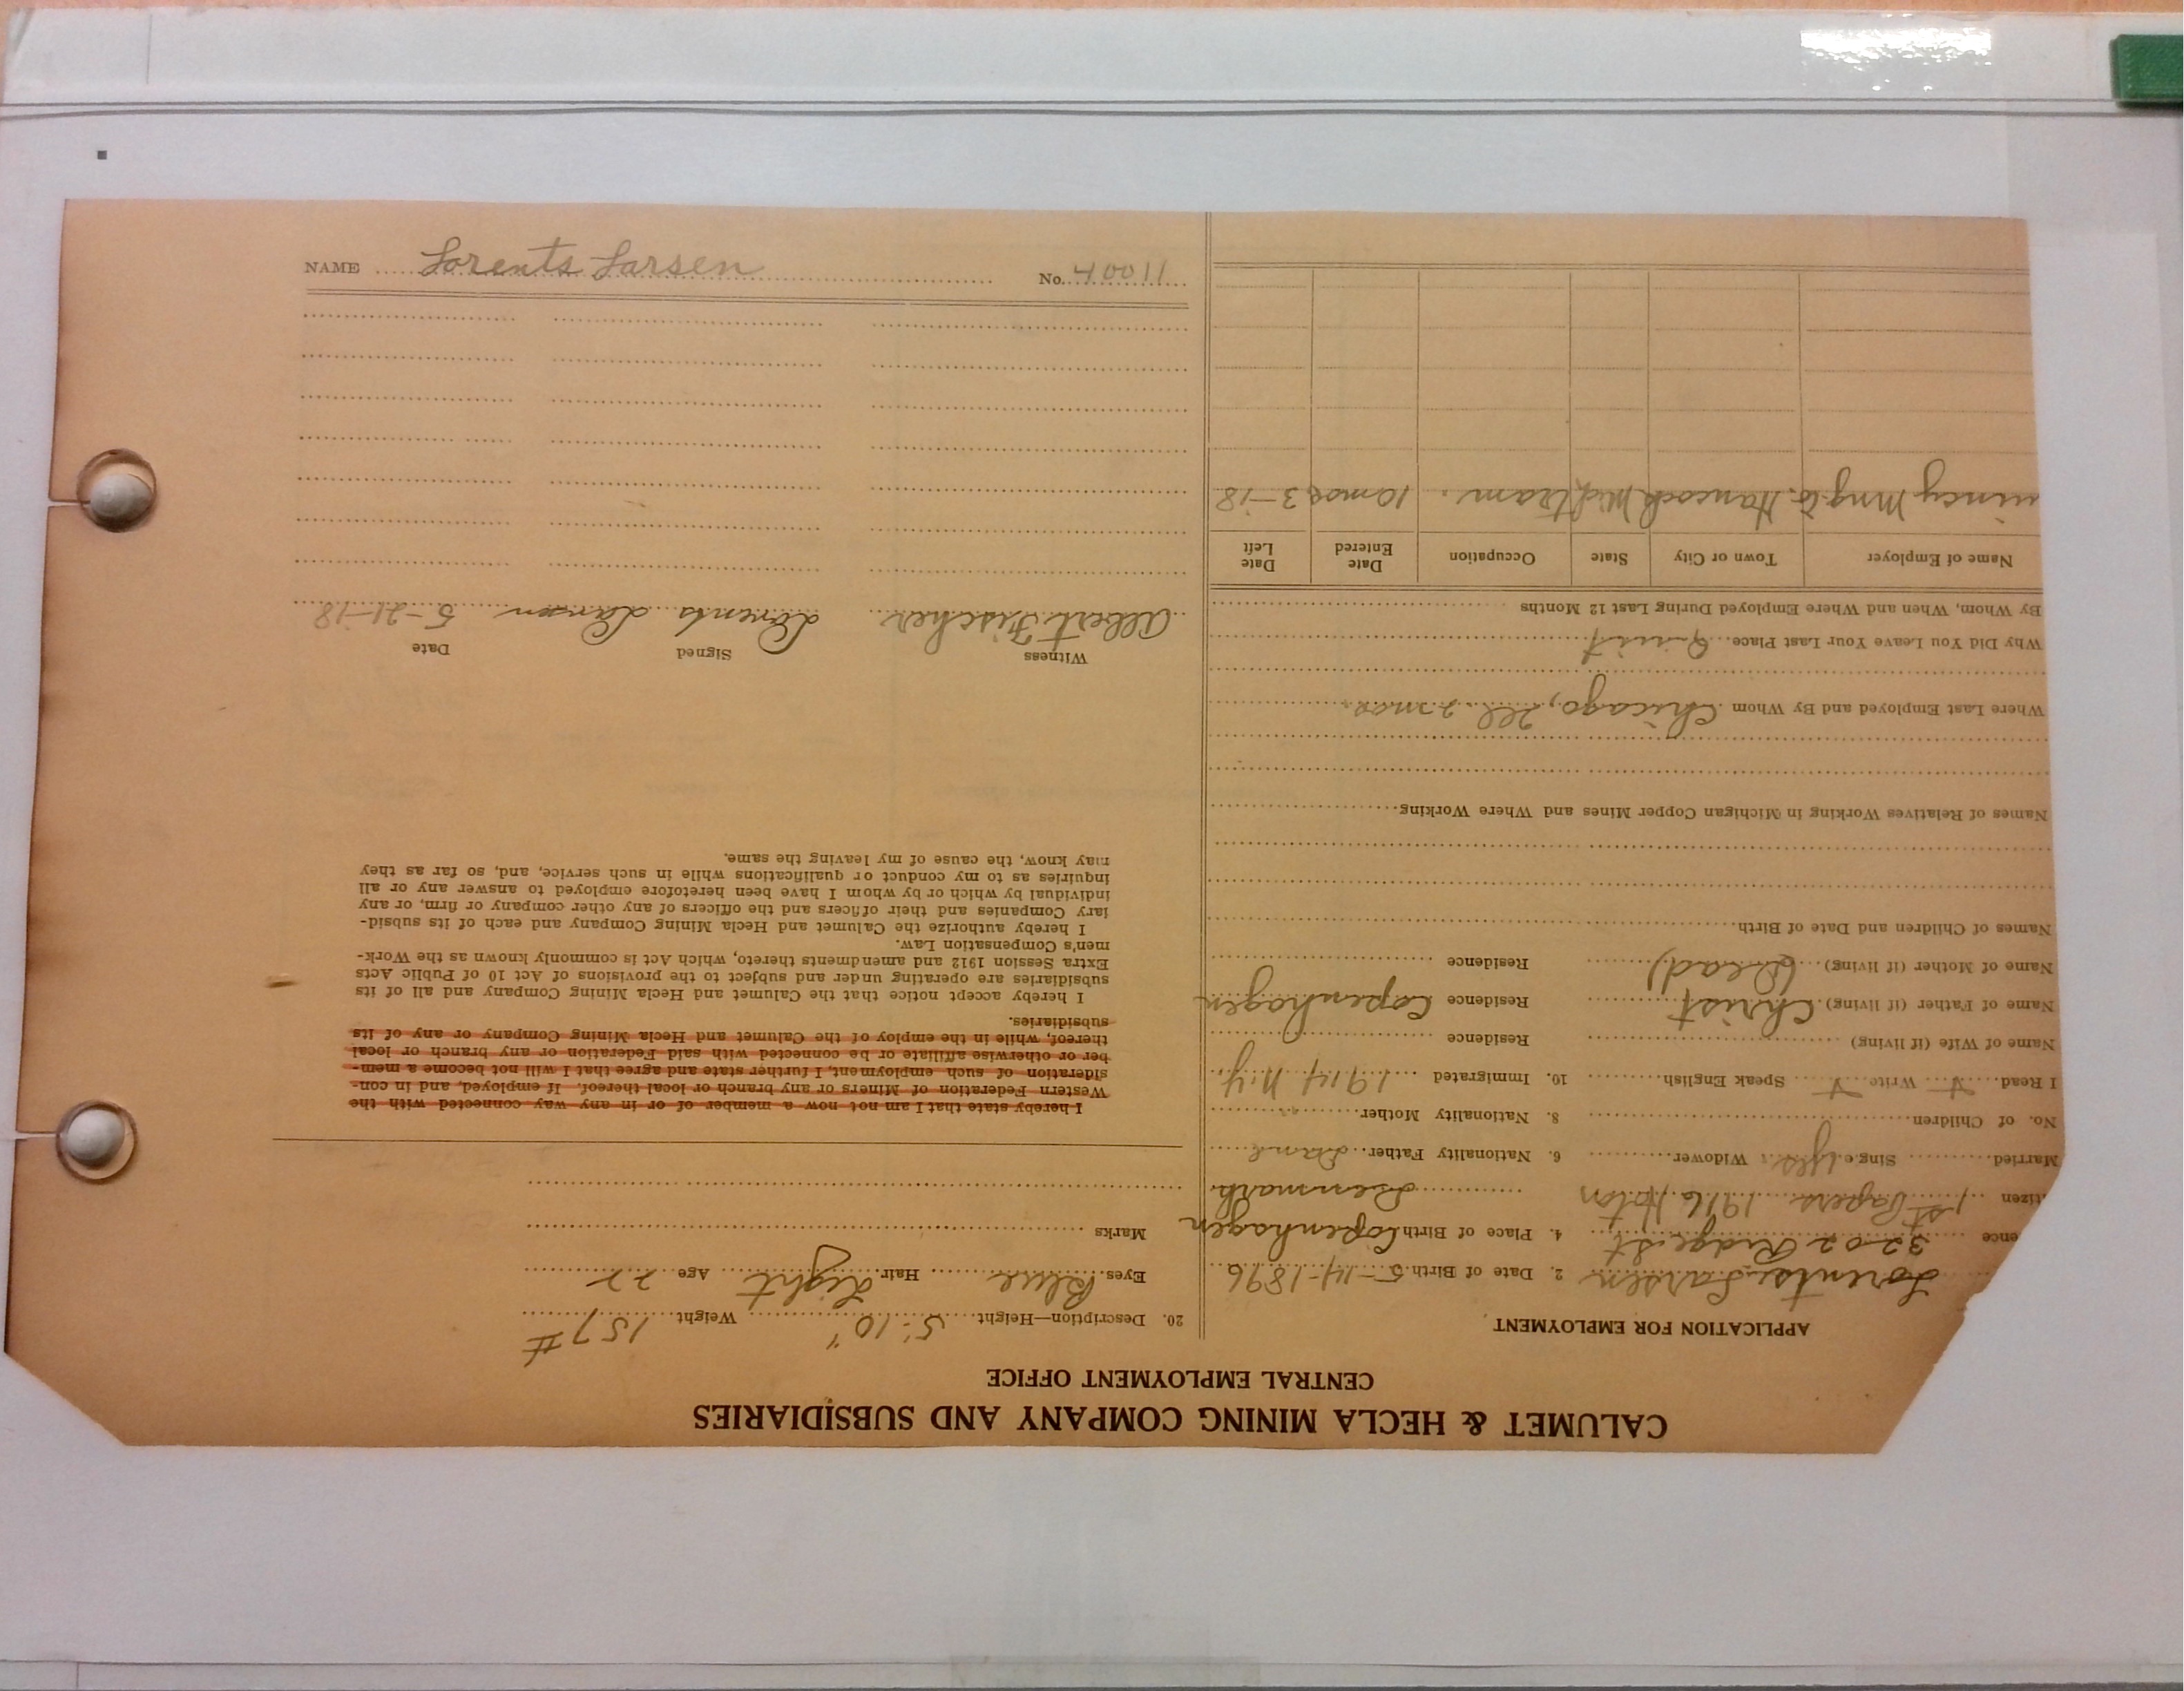 NAME Lorents Larsen No. 40011
CALUMET & HECLA MINING COMPANY AND SUBSIDIARIES
CENTRAL EMPLOYMENT OFFICE
APPLICATION FOR EMPLOYMENT
Lorents Larsen 2. Date of Birth 5-14-1896
ence 3202 Ridge St 4. Place of Birth Copenhagen
tizen 1st Papers 1916 Hoton Denmark
Married Single Yes Widower 6. Nationality Father Dane
No. of Children 8. Nationality Mother "
I Read √ Write √ Speak English 10. Immigrated 1914 N.Y.
Name of Wife (if living) Residence
Name of Father (if living) Christ Residence Copenhagen
Name of Mother (if living) (Dead) Residence
Names of Children and Date of Birth
Names of Relatives Working in Michigan Copper Mines and Where Working
Where Last Employed and By Whom Chicago, Ill 2 mos.
Why Did You Leave Your Last Place Quit
By Whom, When and Where Employed During Last 12 Months
Name of Employer Town or City State Occupation Date Entered Date Left
uincy Mng Co. Hancock Mich tram. 10 mos 3-18
20. Description—Height 5' 10" Weight 157 #
Eyes Blue Hair Light Age 22
Marks
I hereby state that I am not now a member of or in any way connected with the
Western Federation of Miners or any branch or local thereof. If employed, and in con-
sideration of such employment, I further state and agree that I will not become a mem-
ber or otherwise affiliate or be connected with said Federation or any branch or local
thereof, while in the employ of the Calumet and Hecla Mining Company or any of its
subsidiaries.
I hereby accept notice that the Calumet and Hecla Mining Company and all of its
subsidiaries are operating under and subject to the provisions of Act 10 of Public Acts
Extra Session 1912 and amendments thereto, which Act is commonly known as the Work-
men's Compensation Law.
I hereby authorize the Calumet and Hecla Mining Company and each of its subsid-
iary Companies and their officers and the officers of any other company or firm, or any
individual by which or by whom I have been heretofore employed to answer any or all
inquiries as to my conduct or qualifications while in such service, and, so far as they
may know, the cause of my leaving the same.
Witness Signed Date
Albert Fischer Lorents Larsen 5-21-18